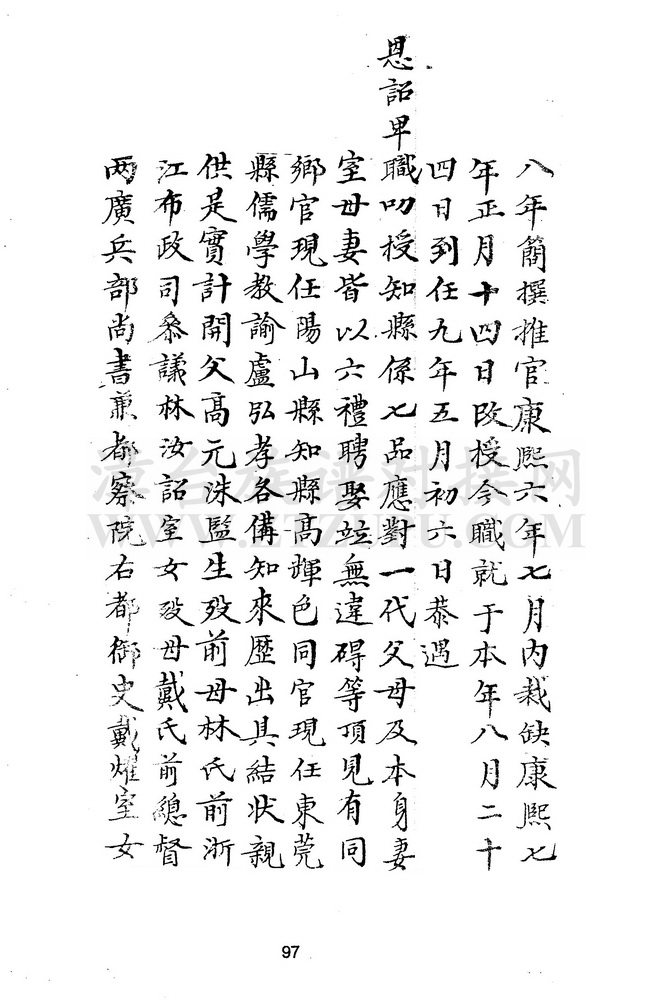 八年簡撰推官康熙六年七月内裁缺康熙七
年正月十四日改授今職就于本年八月二十
四日到任九年五月初六日恭遇
恩詔卑職叨授知縣係七品應對一代父母及本身妻
室母妻皆以六禮聘娶竝無違碍等項見有同
鄉官現任陽山縣知縣高輝色同官現任東莞
縣儒學教諭盧弘孝各俻知來歷出具結状親
供是實計開父高元洙監生歿前母林氏前浙
江布政司叅議林汝詔室女歿母戴氏前總督
两廣兵部尚書兼都察院右都御史戴燿室女
漳台族谱对接网
WWW.ZTZUPU.COM
97